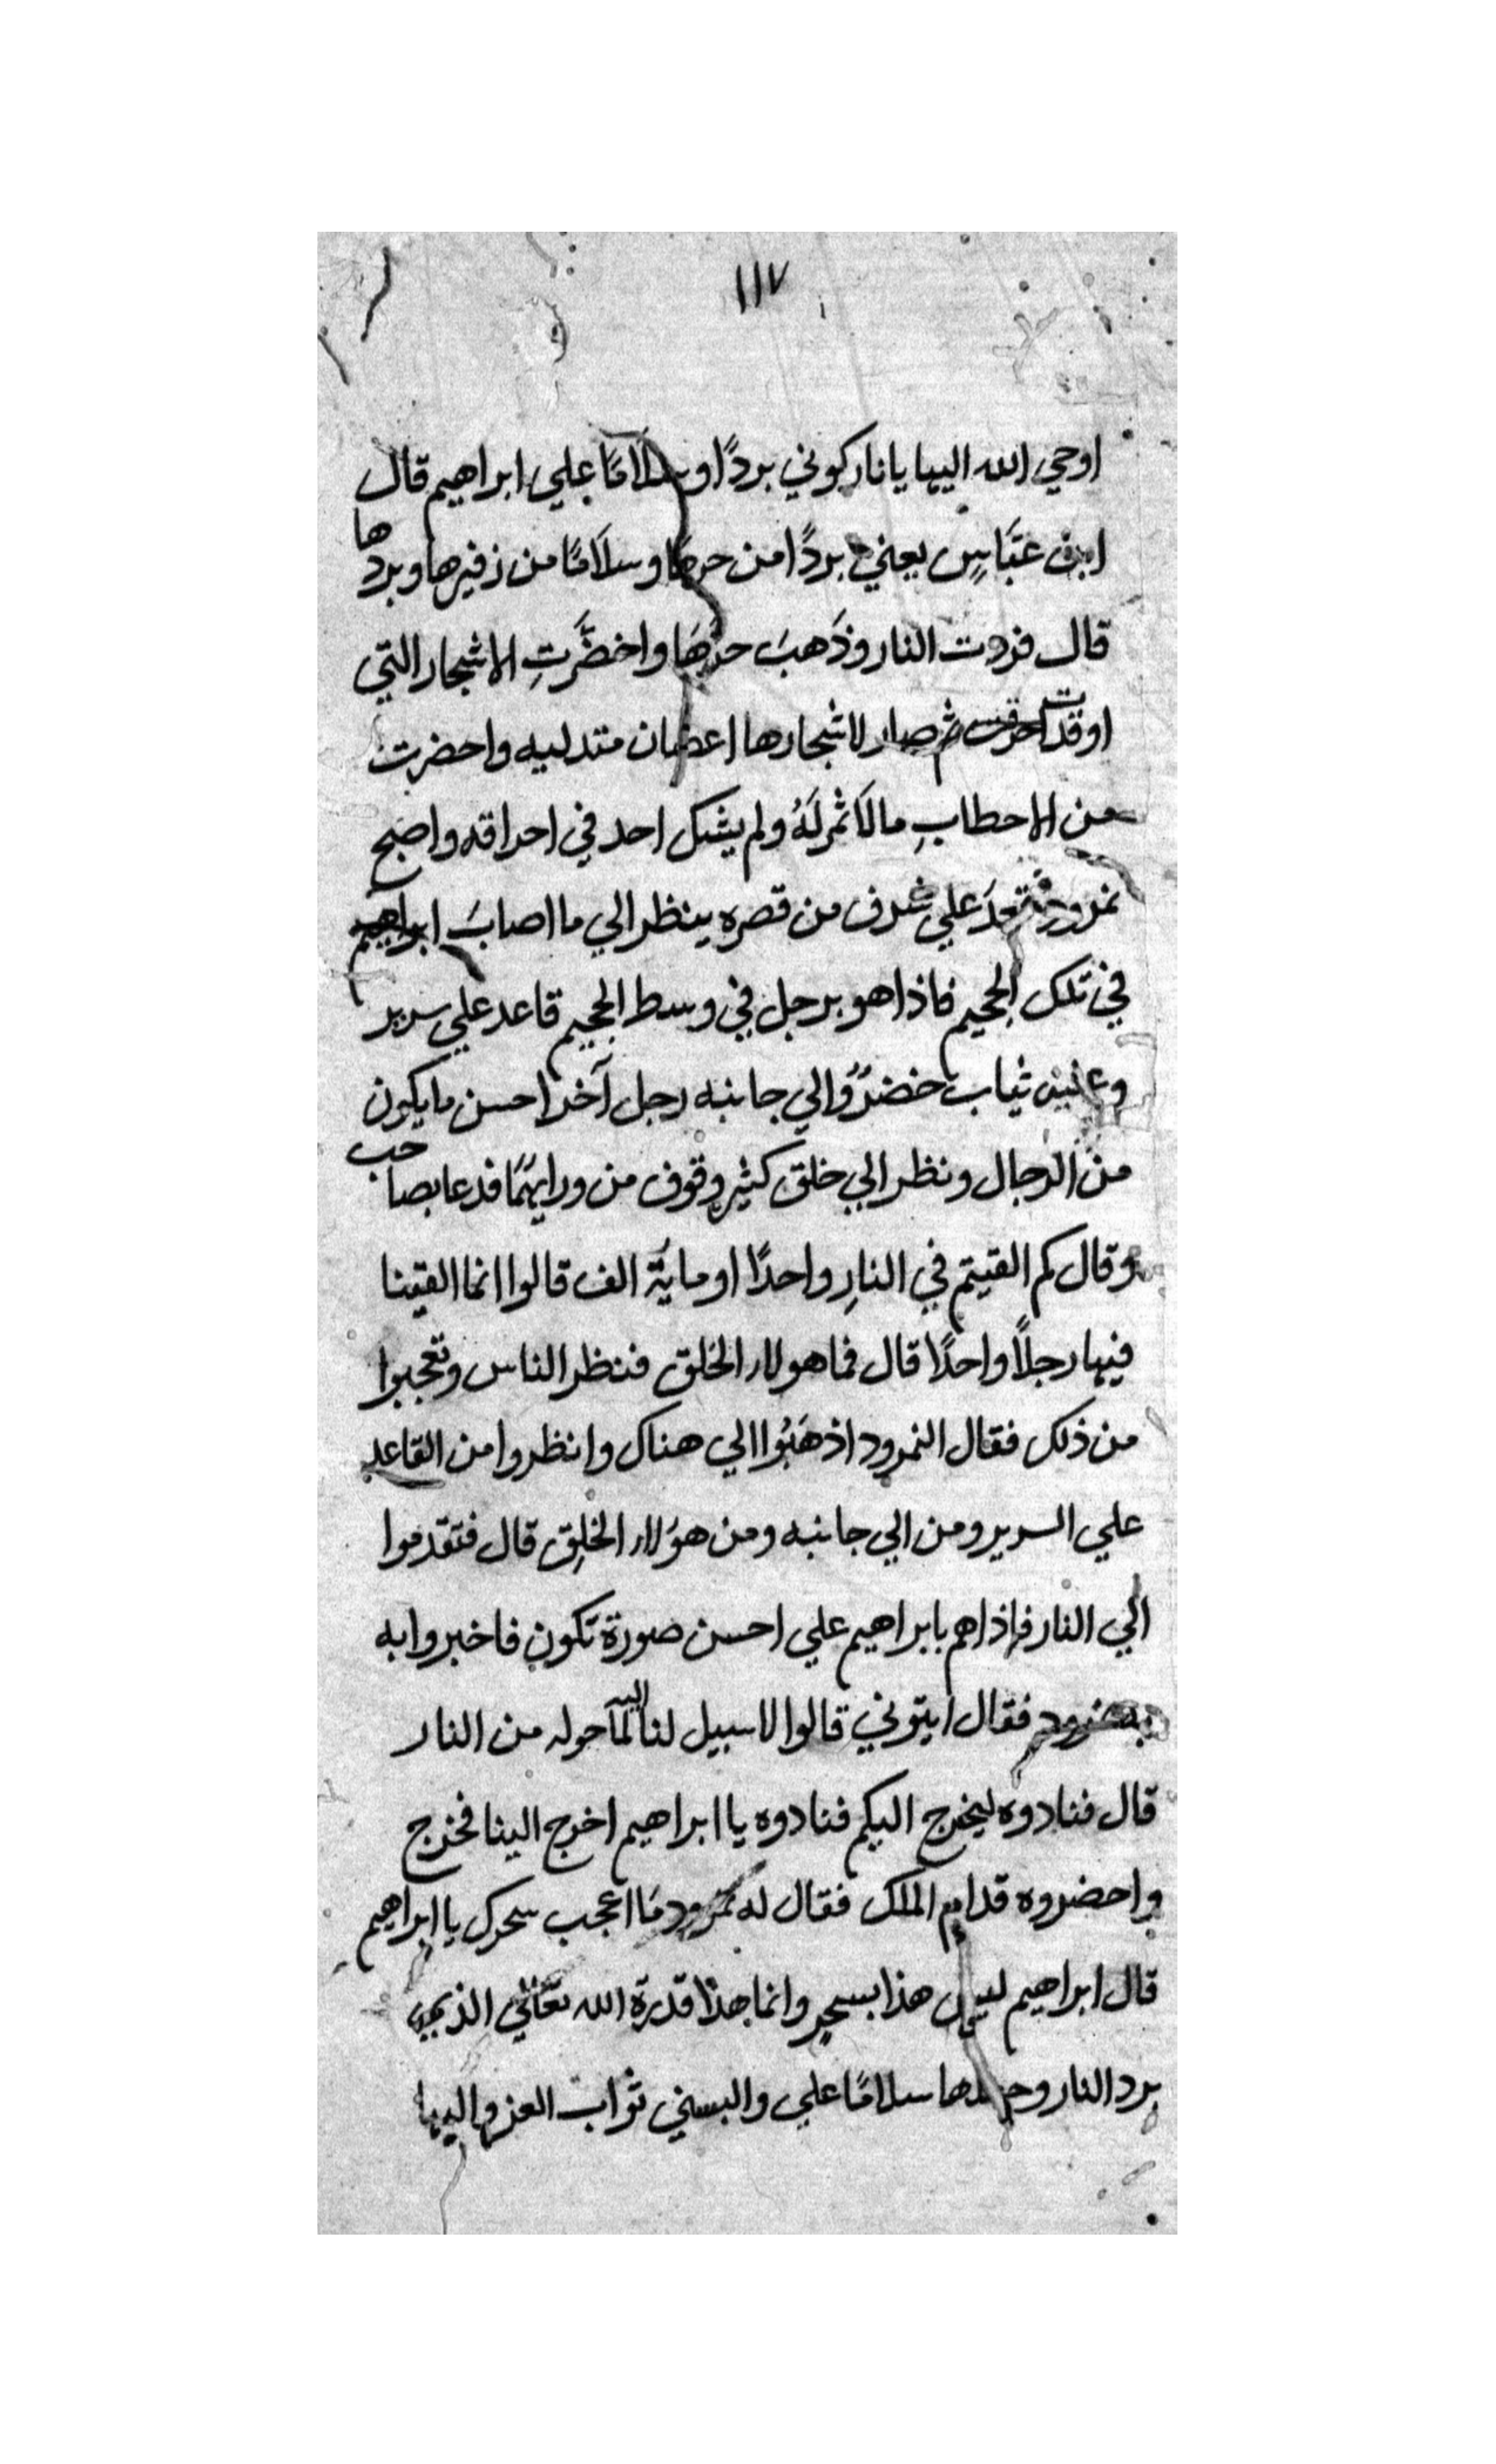 ١١٧
اوحي الله اليها يانار كوني بردًا وسلامًا علي ابراهيم قال
ابن عبَّاسٍ يعني بردًا من حرها وسلَامًا من زفيرها وبردها
قال فبردت النار وذَهبَ حرَّهَا واخضَّرتِ الاشجار التي
اوقدت احرقت ثم صار لاشجارها اعضان متدليه واحضرت
من الاحطابِ مالَا ثمر لَهُ ولم يشكل احد في احراقه واصبح
نمرود علي غرف من قصره ينظر الي ما اصابَ ابراهيم
في تلك الجحيم فاذا هو برجل في وسط الجحيم قاعد علي سرير
وعليه ثياب خضرٌ والي جانبه رجل آخر احسن ما يكون
من الرجال ونظر الي خلق كثير وقوف من ورايهمَا فدعا بصاحب
وقال كم القيتم في النارِ واحدًا او ماية الف قالوا انما القينا
فيها رجلاً واحدًا قال فما هولاء الخلق فنظر الناس وتعجبوا
من ذلك فقال النمرود اذهَبُوا الي هناك وانظروا من القاعد
علي السرير ومن الي جانبه ومن هوَلاء الخلِق قال فتقدموا
الي النار فاذاهم بابراهيم علي احسن صورة تكون فاخبروا به
نمرود فقال ايتوني قالوا لا سبيل لنا اليه لما حوله من النار
قال فنادوه ليخرج اليكم فنادوه يا ابراهيم اخرج الينا فخرج
واحضروه قدام الملك فقال له نمرود مَا اعجب سحرك يا ابراهيم
قال ابراهيم ليس هذا بسحرٍ وانما هذا قدرة الله تعالي الذي
برد النار وجعلها سلامًا علي والبسني ثواب العز والبها